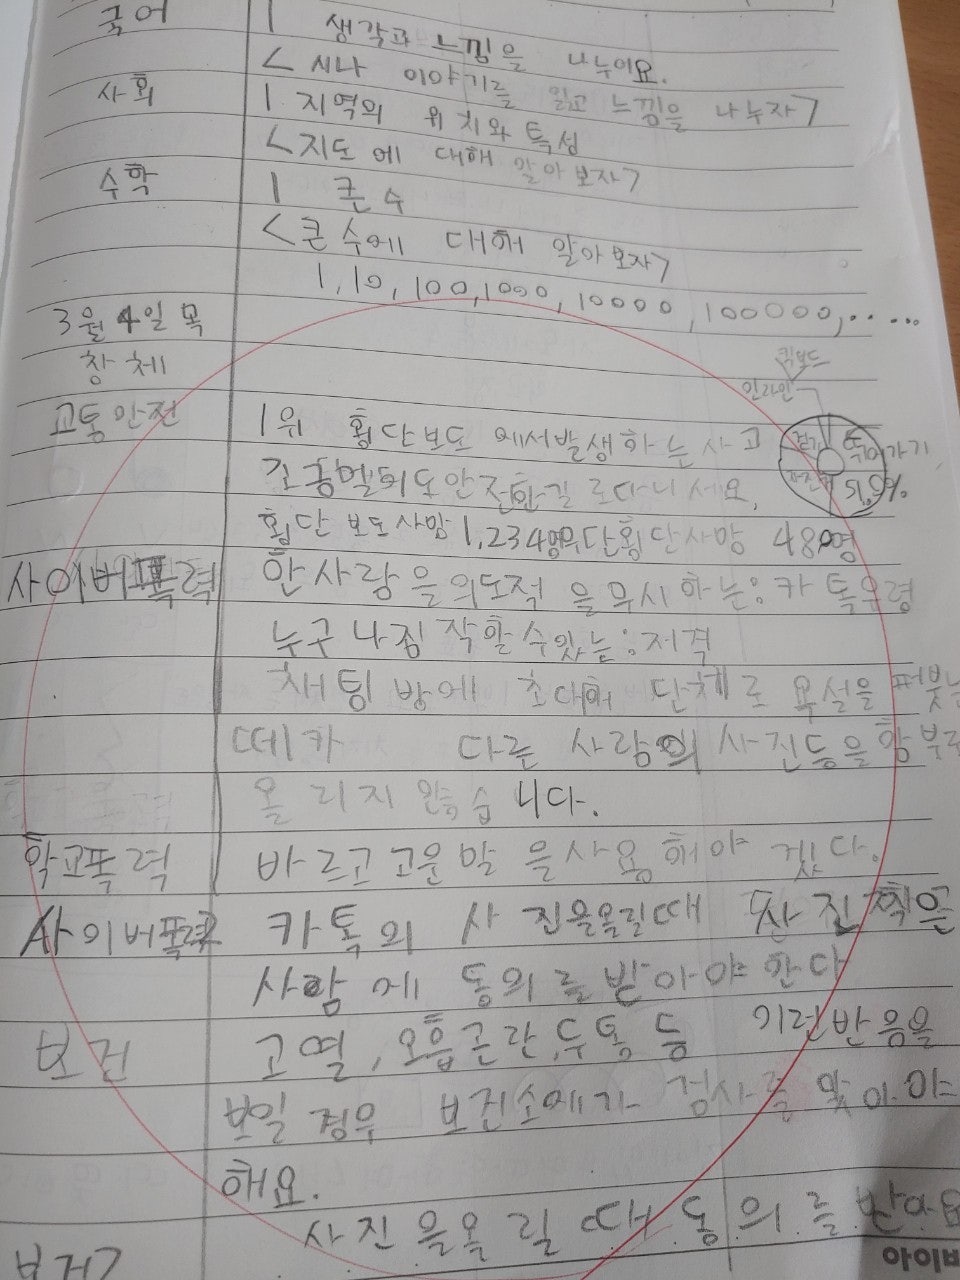 국어 1 생각과 느낌을 나누어요.
<시나 이야기를 읽고 느낌을 나누자>
사회 1. 지역의 위치와 특성
<지도에 대해 알아보자>
수학 1 큰 수
<큰 수에 대해 알아보자>
1,10,100,1000,10000,100000,.....
3월 4일 목
창체
킥보드
인라인
교통안전 1위 횡단보도 에서발생하는 사고
뛰어가기
51.5%
안전한길로다니세요.
횡단보도사망 1,234명,무단횡단사망 480명
사이버폭력 한사람을의도적을무시하는:카톡유령
누구나짐작할수있는:저격
채팅방에 초대해 단체로 욕설을 퍼붓는
떼카 다른 사람의 사진등을함부로
올리지 않습니다.
학교폭력 바르고고운말을사용해야겠다.
사이버폭력 카톡의 사진을올릴때 찍은
사람에 동의를받아야한다
보건 고열, 호흡곤란,두통등 이런반응을
보일경우 보건소에가 검사를 맞아야
해요.
사진을올릴때동의를받아요
보건